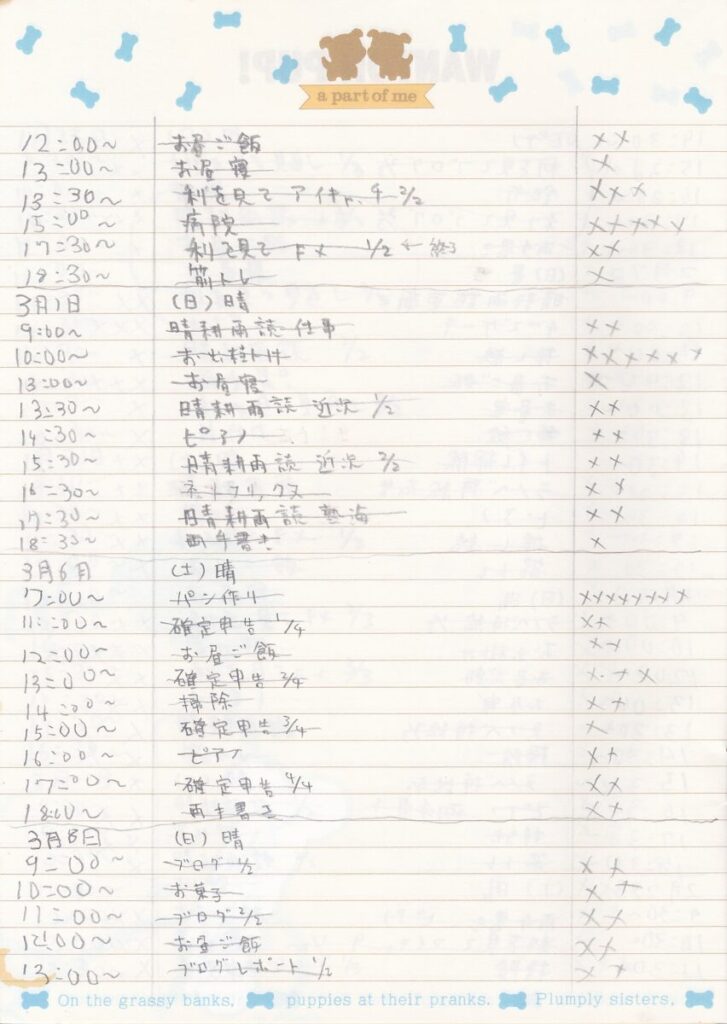 a part of me
12:00～ お昼ご飯 ××
13:00～ お昼寝 ×
13:30～ 利を見て アイキャッチ 2/2 ×××
15:00～ 病院 ×××××
17:30～ 利を見て 1/2 ← 終了 ××
18:30～ 筋トレ ×
3月1日 (日) 晴
9:00～ 晴耕雨読 仕事 ××
10:00～ ××××××
13:00～ お昼寝 ×
13:30～ 晴耕雨読 近況 1/2 ××
14:30～ ピアノ ××
15:30～ 晴耕雨読 近況 2/2 ××
16:30～ ネットフリックス ××
17:30～ 晴耕雨読 熱海 ××
18:30～ 両手書き ×
3月6月 (土) 晴
7:00～ パン作り ××××××××
11:00～ 確定申告 1/4 ××
12:00～ お昼ご飯 ××
13:00～ 確定申告 2/4 ×××
14:00～ 掃除 ××
15:00～ 確定申告 3/4 ×
16:00～ ピアノ ××
17:00～ 確定申告 4/4 ××
18:00～ 両手書き ××
3月8日 (日) 晴
9:00～ ブログ 1/2 ××
10:00～ お菓子 ××
11:00～ ブログ 2/2 ××
12:00～ お昼ご飯 ××
13:00～ ブログレポート 1/2 ××
On the grassy banks, puppies at their pranks. Plumply sisters.